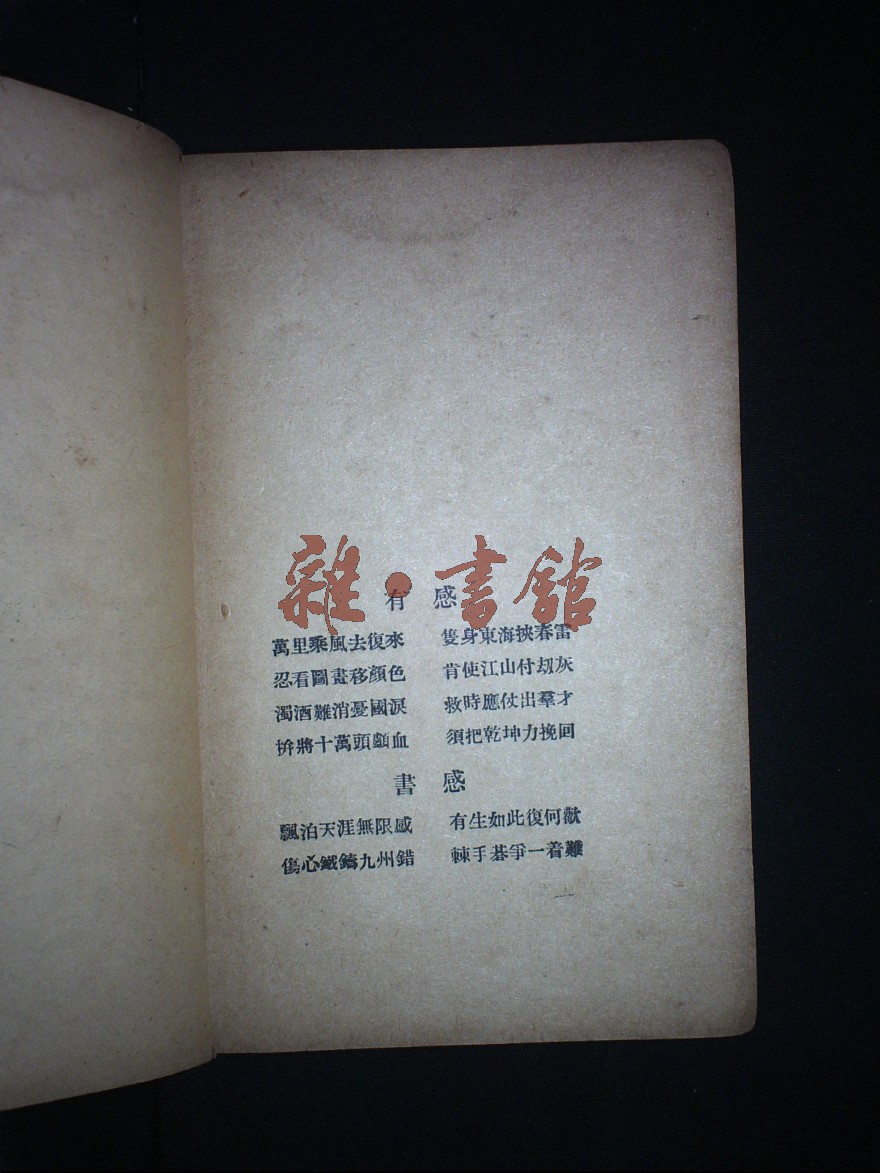 雜·書館
有感
萬里乘風去復來　隻身東海挾春雷
忍看圖畫移顏色　肯使江山付刼灰
濁酒難消憂國淚　救時應仗出羣才
拚將十萬頭顱血　須把乾坤力挽回
書感
飄泊天涯無限感　有生如此復何歡
傷心鐵鑄九州錯　棘手棊爭一着難
一